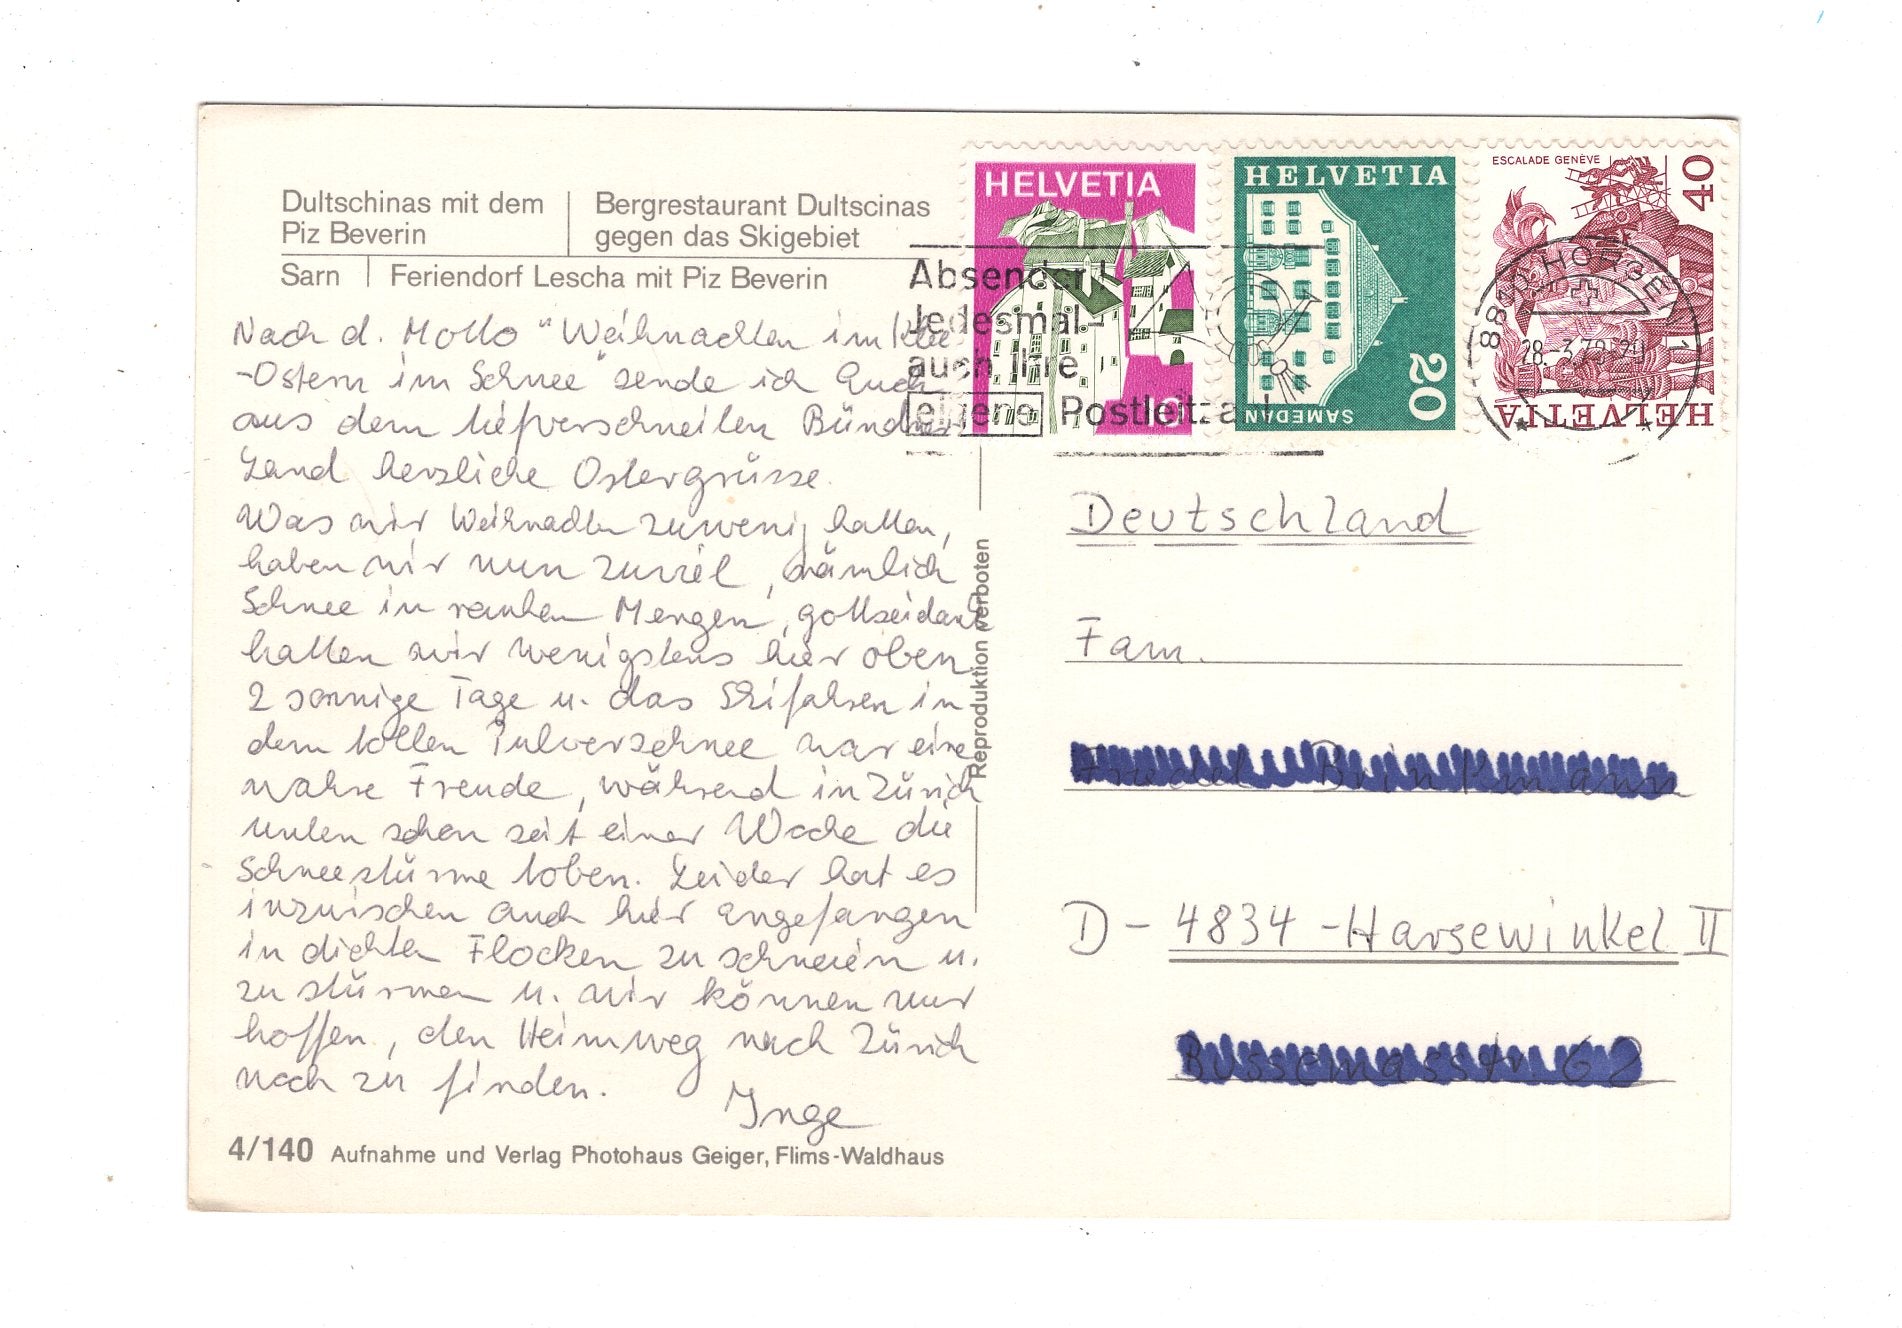 Dultschinas mit dem
Piz Beverin
Bergrestaurant Dultscinas
gegen das Skigebiet
Sarn
Feriendorf Lescha mit Piz Beverin
Nach d. Motto "Weihnachten im Klee
-Ostern im Schnee" sende ich Euch
aus dem tiefverschneiten Bündner
Land herzliche Ostergrüsse.
Was wir Weihnachten zuwenig hatten,
haben wir nun zuviel, nämlich
Schnee in rauhen Mengen, gottseidank
hatten wir wenigstens hier oben
2 sonnige Tage u. das Skifahren in
dem tollen Pulverschnee war eine
wahre Freude, während in Zürich
unten schon seit einer Woche die
Schneestürme toben. Leider hat es
inzwischen auch hier angefangen
in dichten Flocken zu schneien u.
zu stürmen u. wir können nur
hoffen, den Heimweg nach Zürich
noch zu finden.
Inge
4/140 Aufnahme und Verlag Photohaus Geiger, Flims-Waldhaus
Reproduktion verboten
HELVETIA
HELVETIA
20
SAMEDAN
ESCALADE GENÈVE
40
HELVETIA
Absender!
Jedesmal-
auch Ihre
eigene Postleitzahl
8810 HORGEN 1
Deutschland
Fam.
D - 4834 - Harsewinkel II